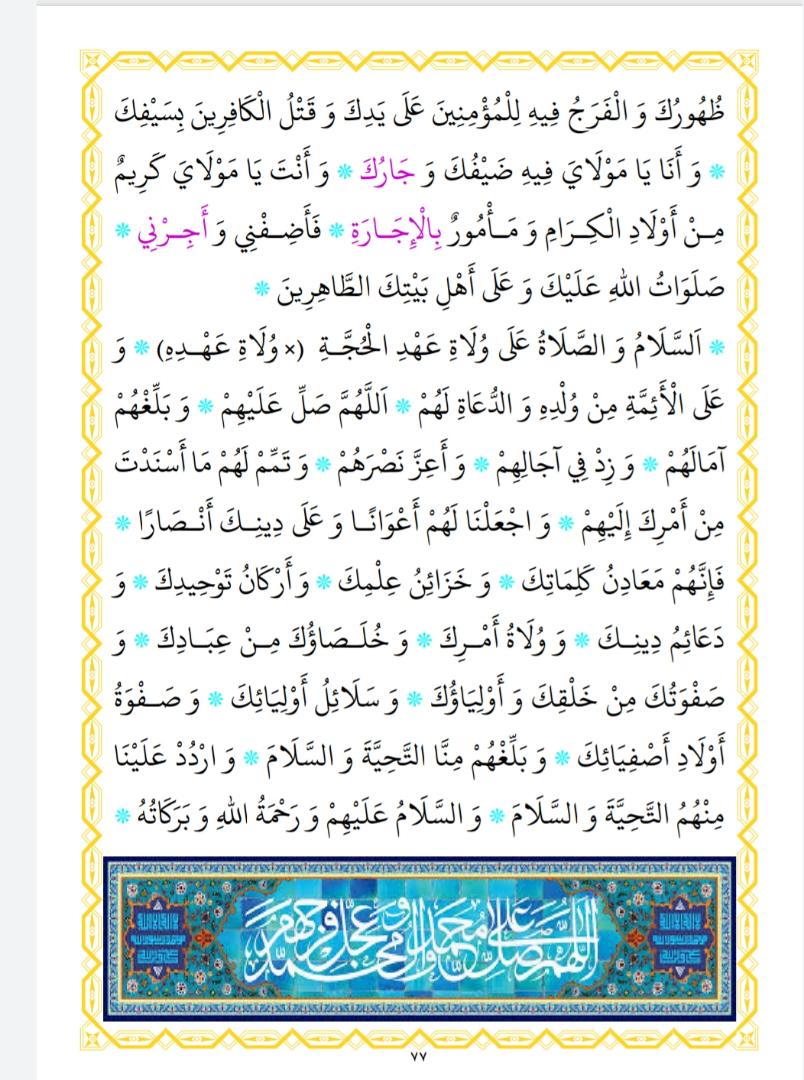 ظُهُورُكَ وَ الْفَرَجُ فِيهِ لِلْمُؤْمِنِينَ عَلَى يَدِكَ وَ قَتْلُ الْكَافِرِينَ بِسَيْفِكَ
* وَ أَنَا يَا مَوْلَايَ فِيهِ ضَيْفُكَ وَ جَارُكَ * وَ أَنْتَ يَا مَوْلَايَ كَرِيمٌ
مِنْ أَوْلَادِ الْكِرَامِ وَ مَأْمُورٌ بِالْإِجَارَةِ * فَأَضِفْنِي وَ أَجِرْنِي *
صَلَوَاتُ اللهِ عَلَيْكَ وَ عَلَى أَهْلِ بَيْتِكَ الطَّاهِرِينَ *
* اَلسَّلَامُ وَ الصَّلَاةُ عَلَى وُلَاةِ عَهْدِ الْحُجَّةِ (× وُلَاةِ عَهْدِهِ) * وَ
عَلَى الْأَئِمَّةِ مِنْ وُلْدِهِ وَ الدُّعَاةِ لَهُمْ * اَللَّهُمَّ صَلِّ عَلَيْهِمْ * وَ بَلِّغْهُمْ
آمَالَهُمْ * وَ زِدْ فِي آجَالِهِمْ * وَ أَعِزَّ نَصْرَهُمْ * وَ تَمِّمْ لَهُمْ مَا أَسْنَدْتَ
مِنْ أَمْرِكَ إِلَيْهِمْ * وَ اجْعَلْنَا لَهُمْ أَعْوَانًا وَ عَلَى دِينِكَ أَنْصَارًا *
فَإِنَّهُمْ مَعَادِنُ كَلِمَاتِكَ * وَ خَزَائِنُ عِلْمِكَ * وَ أَرْكَانُ تَوْحِيدِكَ * وَ
دَعَائِمُ دِينِكَ * وَ وُلَاةُ أَمْرِكَ * وَ خُلَصَاؤُكَ مِنْ عِبَادِكَ * وَ
صَفْوَتُكَ مِنْ خَلْقِكَ وَ أَوْلِيَاؤُكَ * وَ سَلَائِلُ أَوْلِيَائِكَ * وَ صَفْوَةُ
أَوْلَادِ أَصْفِيَائِكَ * وَ بَلِّغْهُمْ مِنَّا التَّحِيَّةَ وَ السَّلَامَ * وَ ارْدُدْ عَلَيْنَا
مِنْهُمُ التَّحِيَّةَ وَ السَّلَامَ * وَ السَّلَامُ عَلَيْهِمْ وَ رَحْمَةُ اللهِ وَ بَرَكَاتُهُ *
اللهم صل علی محمد وآل محمد وعجل فرجهم
٧٧